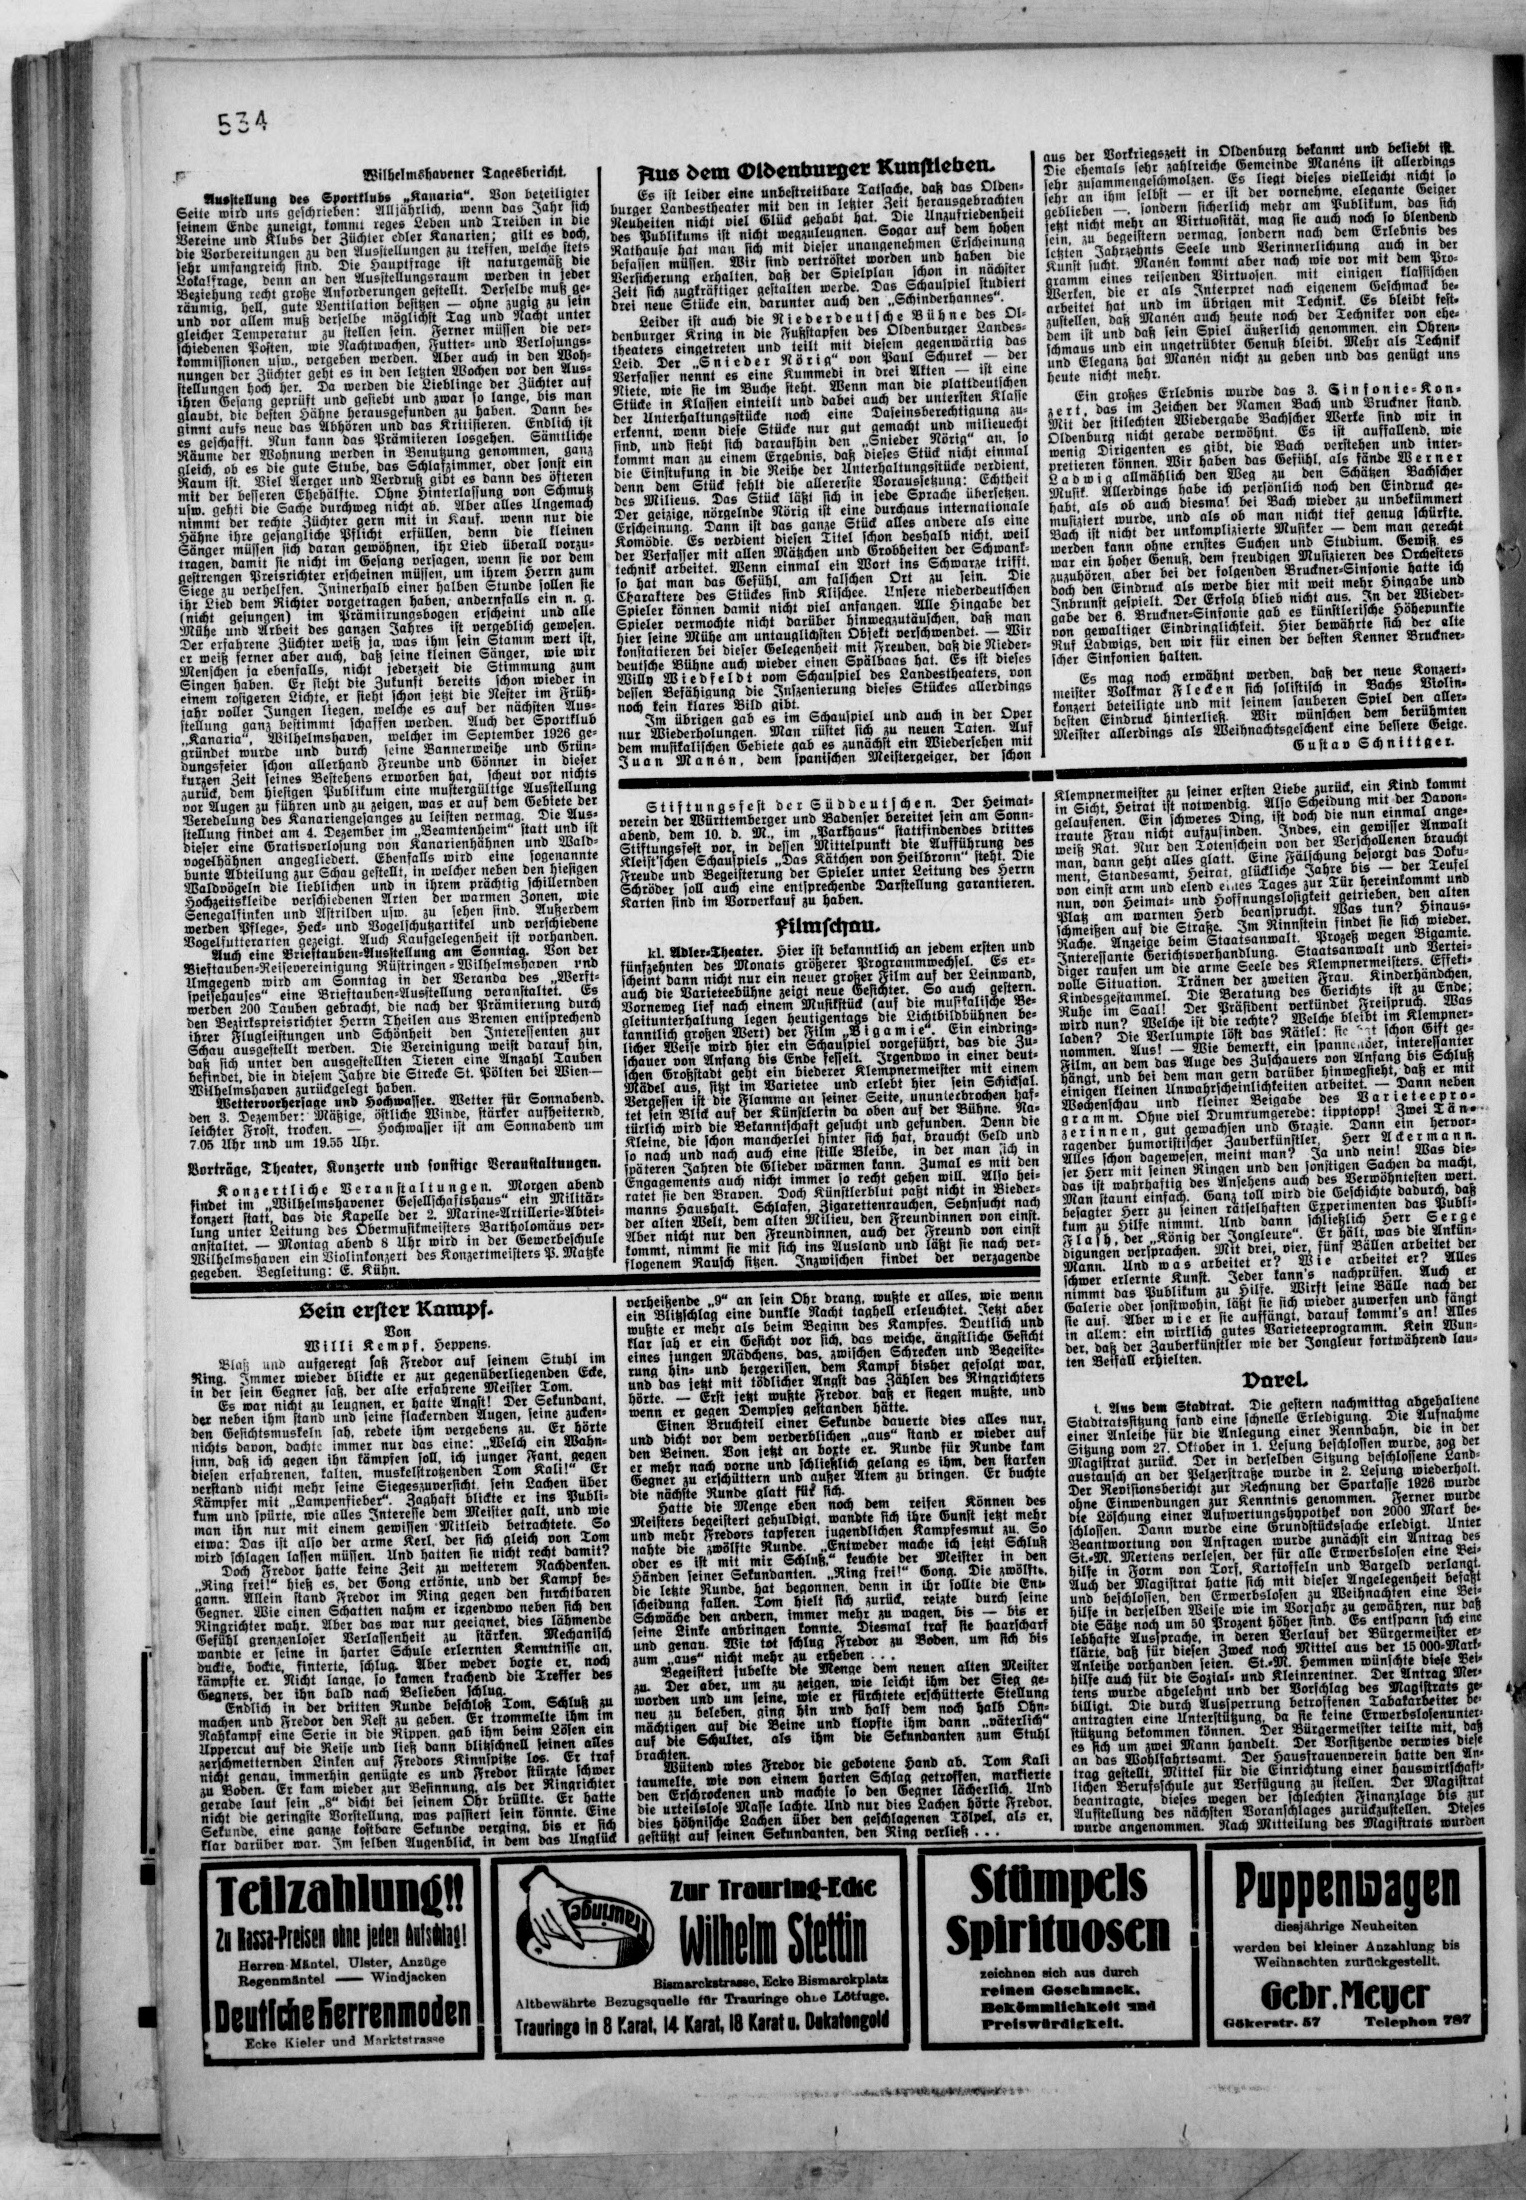 534
Wilhelmshavener Tagesbericht.
Ausstellung des Sportklubs „Kanaria“. Von beteiligter
Seite wird uns geschrieben: Alljährlich, wenn das Jahr sich
seinem Ende zuneigt, kommt reges Leben und Treiben in die
Vereine und Klubs der Züchter edler Kanarien; gilt es doch,
die Vorbereitungen zu den Ausstellungen zu treffen, welche stets
sehr umfangreich sind. Die Hauptfrage ist naturgemäß die
Lokalfrage, denn an den Ausstellungsraum werden in jeder
Beziehung recht große Anforderungen gestellt. Derselbe muß ge-
räumig, hell, gute Ventilation besitzen — ohne zugig zu sein
und vor allem muß derselbe möglichst Tag und Nacht unter
gleicher Temperatur zu stellen sein. Ferner müssen die ver-
schiedenen Posten, wie Nachtwachen, Futter- und Verlosungs-
kommissionen usw., vergeben werden. Aber auch in den Woh-
nungen der Züchter geht es in den letzten Wochen vor den Aus-
stellungen hoch her. Da werden die Lieblinge der Züchter auf
ihren Gesang geprüft und gesiebt und zwar so lange, bis man
glaubt, die besten Hähne herausgefunden zu haben. Dann be-
ginnt aufs neue das Abhören und das Kritisieren. Endlich ist
es geschafft. Nun kann das Prämiieren losgehen. Sämtliche
Räume der Wohnung werden in Benutzung genommen, ganz
gleich, ob es die gute Stube, das Schlafzimmer, oder sonst ein
Raum ist. Viel Aerger und Verdruß gibt es dann des öfteren
mit der besseren Ehehälfte. Ohne Hinterlassung von Schmutz
usw. gehti die Sache durchweg nicht ab. Aber alles Ungemach
nimmt der rechte Züchter gern mit in Kauf, wenn nur die
Hähne ihre gesangliche Pflicht erfüllen, denn die kleinen
Sänger müssen sich daran gewöhnen, ihr Lied überall vorzu-
tragen, damit sie nicht im Gesang versagen, wenn sie vor dem
gestrengen Preisrichter erscheinen müssen, um ihrem Herrn zum
Siege zu verhelfen. Ininerhalb einer halben Stunde sollen sie
ihr Lied dem Richter vorgetragen haben, andernfalls ein n. g.
(nicht gesungen) im Prämiirungsbogen erscheint und alle
Mühe und Arbeit des ganzen Jahres ist vergeblich gewesen.
Der erfahrene Züchter weiß ja, was ihm sein Stamm wert ist,
er weiß ferner aber auch, daß seine kleinen Sänger, wie wir
Menschen ja ebenfalls, nicht jederzeit die Stimmung zum
Singen haben. Er sieht die Zukunft bereits schon wieder in
einem rosigeren Lichte, er sieht schon jetzt die Nester im Früh-
jahr voller Jungen liegen, welche es auf der nächsten Aus-
stellung ganz bestimmt schaffen werden. Auch der Sportklub
„Kanaria“, Wilhelmshaven, welcher im September 1926 ge-
gründet wurde und durch seine Bannerweihe und Grün-
dungsfeier schon allerhand Freunde und Gönner in dieser
kurzen Zeit seines Bestehens erworben hat, scheut vor nichts
zurück, dem hiesigen Publikum eine mustergültige Ausstellung
vor Augen zu führen und zu zeigen, was er auf dem Gebiete der
Veredelung des Kanariengesanges zu leisten vermag. Die Aus-
stellung findet am 4. Dezember im „Beamtenheim“ statt und ist
dieser eine Gratisverlosung von Kanarienhähnen und Wald-
vogelhähnen angegliedert. Ebenfalls wird eine sogenannte
bunte Abteilung zur Schau gestellt, in welcher neben den hiesigen
Waldvögeln die lieblichen und in ihrem prächtig schillernden
Hochzeitskleide verschiedenen Arten der warmen Zonen, wie
Senegalfinken und Astrilden usw. zu sehen sind. Außerdem
werden Pflege-, Heck- und Vogelschutzartikel und verschiedene
Vogelfutterarten gezeigt. Auch Kaufgelegenheit ist vorhanden.
Auch eine Brieftauben-Ausstellung am Sonntag. Von der
Bieftauben-Reisevereinigung Rüstringen-Wilhelmshaven und
Umgegend wird am Sonntag in der Veranda des „Werft-
speisehauses“ eine Brieftauben-Ausstellung veranstaltet. Es
werden 200 Tauben gebracht, die nach der Prämiierung durch
den Bezirkspreisrichter Herrn Theilen aus Bremen entsprechend
ihrer Flugleistungen und Schönheit den Interessenten zur
Schau ausgestellt werden. Die Vereinigung weist darauf hin,
daß sich unter den ausgestellten Tieren eine Anzahl Tauben
befindet, die in diesem Jahre die Strecke St. Pölten bei Wien—
Wilhelmshaven zurückgelegt haben.
Wettervorhersage und Hochwasser. Wetter für Sonnabend,
den 3. Dezember: Mäßige, östliche Winde, stärker aufheiternd,
leichter Frost, trocken. — Hochwasser ist am Sonnabend um
7.05 Uhr und um 19.55 Uhr.
Vorträge, Theater, Konzerte und sonstige Veranstaltungen.
Konzertliche Veranstaltungen. Morgen abend
findet im „Wilhelmshavener Gesellschaftshaus“ ein Militär-
konzert statt, das die Kapelle der 2. Marine-Artillerie-Abtei-
lung unter Leitung des Obermusikmeisters Bartholomäus ver-
anstaltet. — Montag abend 8 Uhr wird in der Gewerbeschule
Wilhelmshaven ein Violinkonzert des Konzertmeisters P. Matzke
gegeben. Begleitung: E. Kühn.
Aus dem Oldenburger Kunstleben.
Es ist leider eine unbestreitbare Tatsache, daß das Olden-
burger Landestheater mit den in letzter Zeit herausgebrachten
Neuheiten nicht viel Glück gehabt hat. Die Unzufriedenheit
des Publikums ist nicht wegzuleugnen. Sogar auf dem hohen
Rathause hat man sich mit dieser unangenehmen Erscheinung
befassen müssen. Wir sind vertröstet worden und haben die
Versicherung erhalten, daß der Spielplan schon in nächster
Zeit sich zugkräftiger gestalten werde. Das Schauspiel studiert
drei neue Stücke ein, darunter auch den „Schinderhannes“.
Leider ist auch die Niederdeutsche Bühne des Ol-
denburger Kring in die Fußstapfen des Oldenburger Landes-
theaters eingetreten und teilt mit diesem gegenwärtig das
Leid. Der „Snieder Nörig“ von Paul Schurek — der
Verfasser nennt es eine Kummedi in drei Akten — ist eine
Niete, wie sie im Buche steht. Wenn man die plattdeutschen
Stücke in Klassen einteilt und dabei auch der untersten Klasse
der Unterhaltungsstücke noch eine Daseinsberechtigung zu-
erkennt, wenn diese Stücke nur gut gemacht und milieuecht
sind, und sieht sich daraufhin den „Snieder Nörig“ an, so
kommt man zu einem Ergebnis, daß dieses Stück nicht einmal
die Einstufung in die Reihe der Unterhaltungsstücke verdient,
denn dem Stück fehlt die allererste Voraussetzung: Echtheit
des Milieus. Das Stück läßt sich in jede Sprache übersetzen.
Der geizige, nörgelnde Nörig ist eine durchaus internationale
Erscheinung. Dann ist das ganze Stück alles andere als eine
Komödie. Es verdient diesen Titel schon deshalb nicht, weil
der Verfasser mit allen Mätzchen und Grobheiten der Schwank-
technik arbeitet. Wenn einmal ein Wort ins Schwarze trifft,
so hat man das Gefühl, am falschen Ort zu sein. Die
Charaktere des Stückes sind Klischee. Unsere niederdeutschen
Spieler können damit nicht viel anfangen. Alle Hingabe der
Spieler vermochte nicht darüber hinwegzutäuschen, daß man
hier seine Mühe am untauglichsten Objekt verschwendet. — Wir
konstatieren bei dieser Gelegenheit mit Freuden, daß die Nieder-
deutsche Bühne auch wieder einen Spälbaas hat. Es ist dieses
Willy Wiedfeldt vom Schauspiel des Landestheaters, von
dessen Befähigung die Inszenierung dieses Stückes allerdings
noch kein klares Bild gibt.
Im übrigen gab es im Schauspiel und auch in der Oper
nur Wiederholungen. Man rüstet sich zu neuen Taten. Auf
dem musikalischen Gebiete gab es zunächst ein Wiedersehen mit
Juan Manén, dem spanischen Meistergeiger, der schon
aus der Vorkriegszeit in Oldenburg bekannt und beliebt ist.
Die ehemals sehr zahlreiche Gemeinde Manéns ist allerdings
sehr zusammengeschmolzen. Es liegt dieses vielleicht nicht so
sehr an ihm selbst — er ist der vornehme, elegante Geiger
geblieben —, sondern sicherlich mehr am Publikum, das sich
jetzt nicht mehr an Virtuosität, mag sie auch noch so blendend
sein, zu begeistern vermag, sondern nach dem Erlebnis des
letzten Jahrzehnts Seele und Verinnerlichung auch in der
Kunst sucht. Manén kommt aber nach wie vor mit dem Pro-
gramm eines reisenden Virtuosen, mit einigen klassischen
Werken, die er als Interpret nach eigenem Geschmack be-
arbeitet hat und im übrigen mit Technik. Es bleibt fest-
zustellen, daß Manén auch heute noch der Techniker von ehe-
dem ist und daß sein Spiel äußerlich genommen, ein Ohren-
schmaus und ein ungetrübter Genuß bleibt. Mehr als Technik
und Eleganz hat Manén nicht zu geben und das genügt uns
heute nicht mehr.
Ein großes Erlebnis wurde das 3. Sinfonie-Kon-
zert, das im Zeichen der Namen Bach und Bruckner stand.
Mit der stilechten Wiedergabe Bachscher Werke sind wir in
Oldenburg nicht gerade verwöhnt. Es ist auffallend, wie
wenig Dirigenten es gibt, die Bach verstehen und inter-
pretieren können. Wir haben das Gefühl, als fände Werner
Ladwig allmählich den Weg zu den Schätzen Bachscher
Musik. Allerdings habe ich persönlich noch den Eindruck ge-
habt, als ob auch diesmal bei Bach wieder zu unbekümmert
musiziert wurde, und als ob man nicht tief genug schürfte.
Bach ist nicht der unkomplizierte Musiker — dem man gerecht
werden kann ohne ernstes Suchen und Studium. Gewiß, es
war ein hoher Genuß, dem freudigen Musizieren des Orchesters
zuzuhören, aber bei der folgenden Bruckner-Sinfonie hatte ich
doch den Eindruck als werde hier mit weit mehr Hingabe und
Inbrunst gespielt. Der Erfolg blieb nicht aus. In der Wieder-
gabe der 6. Bruckner-Sinfonie gab es künstlerische Höhepunkte
von gewaltiger Eindringlichkeit. Hier bewährte sich der alte
Ruf Ladwigs, den wir für einen der besten Kenner Bruckner-
scher Sinfonien halten.
Es mag noch erwähnt werden, daß der neue Konzert-
meister Volkmar Flecken sich solistisch in Bachs Violin-
konzert beteiligte und mit seinem sauberen Spiel den aller-
besten Eindruck hinterließ. Wir wünschen dem berühmten
Meister allerdings als Weihnachtsgeschenk eine bessere Geige.
Gustav Schnittger.
Stiftungsfest der Süddeutschen. Der Heimat-
verein der Württemberger und Badenser bereitet sein am Sonn-
abend, dem 10. d. M., im „Parkhaus“ stattfindendes drittes
Stiftungsfest vor, in dessen Mittelpunkt die Aufführung des
Kleist'schen Schauspiels „Das Kätchen von Heilbronn“ steht. Die
Freude und Begeisterung der Spieler unter Leitung des Herrn
Schröder soll auch eine entsprechende Darstellung garantieren.
Karten sind im Vorverkauf zu haben.
Filmschau.
kl. Adler-Theater. Hier ist bekanntlich an jedem ersten und
fünfzehnten des Monats größerer Programmwechsel. Es er-
scheint dann nicht nur ein neuer großer Film auf der Leinwand,
auch die Varieteebühne zeigt neue Gesichter. So auch gestern.
Vorneweg lief nach einem Musikstück (auf die musikalische Be-
gleitunterhaltung legen heutigentags die Lichtbildbühnen be-
kanntlich großen Wert) der Film „Bigamie“. Ein eindring-
licher Weise wird hier ein Schauspiel vorgeführt, das die Zu-
schauer von Anfang bis Ende fesselt. Irgendwo in einer deut-
schen Großstadt geht ein biederer Klempnermeister mit einem
Mädel aus, sitzt im Varietee und erlebt hier sein Schicksal.
Vergessen ist die Flamme an seiner Seite, ununterbrochen haf-
tet sein Blick auf der Künstlerin da oben auf der Bühne. Na-
türlich wird die Bekanntschaft gesucht und gefunden. Denn die
Kleine, die schon mancherlei hinter sich hat, braucht Geld und
so nach und nach auch eine stille Bleibe, in der man sich in
späteren Jahren die Glieder wärmen kann. Zumal es mit den
Engagements auch nicht immer so recht gehen will. Also hei-
ratet sie den Braven. Doch Künstlerblut paßt nicht in Bieder-
manns Haushalt. Schlafen, Zigarettenrauchen, Sehnsucht nach
der alten Welt, dem alten Milieu, den Freundinnen von einst.
Aber nicht nur den Freundinnen, auch der Freund von einst
kommt, nimmt sie mit sich ins Ausland und läßt sie nach ver-
flogenem Rausch sitzen. Inzwischen findet der verzagende
Klempnermeister zu seiner ersten Liebe zurück, ein Kind kommt
in Sicht, Heirat ist notwendig. Also Scheidung mit der Davon-
gelaufenen. Ein schweres Ding, ist doch die nun einmal ange-
traute Frau nicht aufzufinden. Indes, ein gewisser Anwalt
weiß Rat. Nur den Totenschein von der Verschollenen braucht
man, dann geht alles glatt. Eine Fälschung besorgt das Doku-
ment, Standesamt, Heirat, glückliche Jahre bis — der Teufel
von einst arm und elend eines Tages zur Tür hereinkommt und
nun, von Heimat- und Hoffnungslosigkeit getrieben, den alten
Platz am warmen Herd beansprucht. Was tun? Hinaus-
schmeißen auf die Straße. Im Rinnstein findet sie sich wieder.
Rache. Anzeige beim Staatsanwalt. Prozeß wegen Bigamie.
Interessante Gerichtsverhandlung. Staatsanwalt und Vertei-
diger raufen um die arme Seele des Klempnermeisters. Effekt-
volle Situation. Tränen der zweiten Frau. Kinderhändchen,
Kindesgestammel. Die Beratung des Gerichts ist zu Ende;
Ruhe im Saal! Der Präsident verkündet Freispruch. Was
wird nun? Welche ist die rechte? Welche bleibt im Klempner-
laden? Die Verlumpte löst das Rätsel: sie hat schon Gift ge-
nommen. Aus! — Wie bemerkt, ein spannender, interessanter
Film, an dem das Auge des Zuschauers von Anfang bis Schluß
hängt, und bei dem man gern darüber hinwegsieht, daß er mit
einigen kleinen Unwahrscheinlichkeiten arbeitet. — Dann neben
Wochenschau und kleiner Beigabe des Varieteepro-
gramm. Ohne viel Drumrumgerede: tipptopp! Zwei Tän-
zerinnen, gut gewachsen und Grazie. Dann ein hervor-
ragender humoristischer Zauberkünstler, Herr Ackermann.
Alles schon dagewesen, meint man? Ja und nein! Was die-
ser Herr mit seinen Ringen und den sonstigen Sachen da macht,
das ist wahrhaftig des Ansehens auch des Verwöhntesten wert.
Man staunt einfach. Ganz toll wird die Geschichte dadurch, daß
besagter Herr zu seinen rätselhaften Experimenten das Publi-
kum zu Hilfe nimmt. Und dann schließlich Herr Serge
Flash, der „König der Jongleure“. Er hält, was die Ankün-
digungen versprachen. Mit drei, vier, fünf Bällen arbeitet der
Mann. Und was arbeitet er? Wie arbeitet er? Alles
schwer erlernte Kunst. Jeder kann's nachprüfen. Auch er
nimmt das Publikum zu Hilfe. Wirft seine Bälle nach der
Galerie oder sonstwohin, läßt sie sich wieder zuwerfen und fängt
sie auf. Aber wie er sie auffängt, darauf kommt's an! Alles
in allem: ein wirklich gutes Varieteeprogramm. Kein Wun-
der, daß der Zauberkünstler wie der Jongleur fortwährend lau-
ten Beifall erhielten.
Varel.
t. Aus dem Stadtrat. Die gestern nachmittag abgehaltene
Stadtratssitzung fand eine schnelle Erledigung. Die Aufnahme
einer Anleihe für die Anlegung einer Rennbahn, die in der
Sitzung vom 27. Oktober in 1. Lesung beschlossen wurde, zog der
Magistrat zurück. Der in derselben Sitzung beschlossene Land-
austausch an der Pelzerstraße wurde in 2. Lesung wiederholt.
Der Revisionsbericht zur Rechnung der Sparkasse 1926 wurde
ohne Einwendungen zur Kenntnis genommen. Ferner wurde
die Löschung einer Aufwertungshypothek von 2000 Mark be-
schlossen. Dann wurde eine Grundstückssache erledigt. Unter
Beantwortung von Anfragen wurde zunächst ein Antrag des
St.-M. Mertens verlesen, der für alle Erwerbslosen eine Bei-
hilfe in Form von Torf, Kartoffeln und Bargeld verlangt.
Auch der Magistrat hatte sich mit dieser Angelegenheit befaßt
und beschlossen, den Erwerbslosen zu Weihnachten eine Bei-
hilfe in derselben Weise wie im Vorjahr zu gewähren, nur daß
die Sätze noch um 50 Prozent höher sind. Es entspann sich eine
lebhafte Aussprache, in deren Verlauf der Bürgermeister er-
klärte, daß für diesen Zweck noch Mittel aus der 15 000-Mark-
Anleihe vorhanden seien. St.-M. Hemmen wünschte diese Bei-
hilfe auch für die Sozial- und Kleinrentner. Der Antrag Mer-
tens wurde abgelehnt und der Vorschlag des Magistrats ge-
billigt. Die durch Aussperrung betroffenen Tabakarbeiter be-
antragten eine Unterstützung, da sie keine Erwerbslosenunter-
stützung bekommen können. Der Bürgermeister teilte mit, daß
es sich um zwei Mann handelt. Der Vorsitzende verwies diese
an das Wohlfahrtsamt. Der Hausfrauenverein hatte den An-
trag gestellt, Mittel für die Einrichtung einer hauswirtschaft-
lichen Berufsschule zur Verfügung zu stellen. Der Magistrat
beantragte, dieses wegen der schlechten Finanzlage bis zur
Aufstellung des nächsten Voranschlages zurückzustellen. Dieses
wurde angenommen. Nach Mitteilung des Magistrats wurden
Sein erster Kampf.
Von
Willi Kempf, Heppens.
Blaß und aufgeregt saß Fredor auf seinem Stuhl im
Ring. Immer wieder blickte er zur gegenüberliegenden Ecke,
in der sein Gegner saß, der alte erfahrene Meister Tom.
Es war nicht zu leugnen, er hatte Angst! Der Sekundant,
der neben ihm stand und seine flackernden Augen, seine zucken-
den Gesichtsmuskeln sah, redete ihm vergebens zu. Er hörte
nichts davon, dachte immer nur das eine: „Welch ein Wahn-
sinn, daß ich gegen ihn kämpfen soll, ich junger Fant, gegen
diesen erfahrenen, kalten, muskelstrotzenden Tom Kali!“ Er
verstand nicht mehr seine Siegeszuversicht, sein Lachen über
Kämpfer mit „Lampenfieber“. Zaghaft blickte er ins Publi-
kum und spürte, wie alles Interesse dem Meister galt, und wie
man ihn nur mit einem gewissen Mitleid betrachtete. So
etwa: Das ist also der arme Kerl, der sich gleich von Tom
wird schlagen lassen müssen. Und hatten sie nicht recht damit?
Doch Fredor hatte keine Zeit zu weiterem Nachdenken.
„Ring frei!“ hieß es, der Gong ertönte, und der Kampf be-
gann. Allein stand Fredor im Ring gegen den furchtbaren
Gegner. Wie einen Schatten nahm er irgendwo neben sich den
Ringrichter wahr. Aber das war nur geeignet, dies lähmende
Gefühl grenzenloser Verlassenheit zu stärken. Mechanisch
wandte er seine in harter Schule erlernten Kenntnisse an,
duckte, bockte, finterte, schlug. Aber weder boxte er, noch
kämpfte er. Nicht lange, so kamen krachend die Treffer des
Gegners, der ihn bald nach Belieben schlug.
Endlich in der dritten Runde beschloß Tom, Schluß zu
machen und Fredor den Rest zu geben. Er trommelte ihm im
Nahkampf eine Serie in die Rippen, gab ihm beim Lösen ein
Uppercut auf die Reise und ließ dann blitzschnell seinen alles
zerschmetternden Linken auf Fredors Kinnspitze los. Er traf
nicht genau, immerhin genügte es und Fredor stürzte schwer
zu Boden. Er kam wieder zur Besinnung, als der Ringrichter
gerade laut sein „8“ dicht bei seinem Ohr brüllte. Er hatte
nicht die geringste Vorstellung, was passiert sein könnte. Eine
Sekunde, eine ganze kostbare Sekunde verging, bis er sich
klar darüber war. Im selben Augenblick, in dem das Unglück
verheißende „9“ an sein Ohr drang, wußte er alles, wie wenn
ein Blitzschlag eine dunkle Nacht taghell erleuchtet. Jetzt aber
wußte er mehr als beim Beginn des Kampfes. Deutlich und
klar sah er ein Gesicht vor sich, das weiche, ängstliche Gesicht
eines jungen Mädchens, das, zwischen Schrecken und Begeiste-
rung hin- und hergerissen, dem Kampf bisher gefolgt war,
und das jetzt mit tödlicher Angst das Zählen des Ringrichters
hörte. — Erst jetzt wußte Fredor, daß er siegen mußte, und
wenn er gegen Dempsey gestanden hätte.
Einen Bruchteil einer Sekunde dauerte dies alles nur,
und dicht vor dem verderblichen „aus“ stand er wieder auf
den Beinen. Von jetzt an boxte er. Runde für Runde kam
er mehr nach vorne und schließlich gelang es ihm, den starken
Gegner zu erschüttern und außer Atem zu bringen. Er buchte
die nächste Runde glatt für sich.
Hatte die Menge eben noch dem reifen Können des
Meisters begeistert gehuldigt, wandte sich ihre Gunst jetzt mehr
und mehr Fredors tapferen jugendlichen Kampfesmut zu. So
nahte die zwölfte Runde. „Entweder mache ich jetzt Schluß
oder es ist mit mir Schluß,“ keuchte der Meister in den
Händen seiner Sekundanten. „Ring frei!“ Gong. Die zwölfte,
die letzte Runde, hat begonnen, denn in ihr sollte die Ent-
scheidung fallen. Tom hielt sich zurück, reizte durch seine
Schwäche den andern, immer mehr zu wagen, bis — bis er
seine Linke anbringen konnte. Diesmal traf sie haarscharf
und genau. Wie tot schlug Fredor zu Boden, um sich bis
zum „aus“ nicht mehr zu erheben . . .
Begeistert jubelte die Menge dem neuen alten Meister
zu. Der aber, um zu zeigen, wie leicht ihm der Sieg ge-
worden und um seine, wie er fürchtete erschütterte Stellung
neu zu beleben, ging hin und half dem noch halb Ohn-
mächtigen auf die Beine und klopfte ihm dann „väterlich“
auf die Schulter, als ihm die Sekundanten zum Stuhl
brachten.
Wütend wies Fredor die gebotene Hand ab. Tom Kali
taumelte, wie von einem harten Schlag getroffen, markierte
den Erschrockenen und machte so den Gegner lächerlich. Und
die urteilslose Masse lachte. Und nur dies Lachen hörte Fredor,
dies höhnische Lachen über den geschlagenen Tölpel, als er,
gestützt auf seinen Sekundanten, den Ring verließ . . .
Teilzahlung!!
Zu Kassa-Preisen ohne jeden Aufschlag!
Herren-Mäntel, Ulster, Anzüge
Regenmäntel — Windjacken
Deutsche Herrenmoden
Ecke Kieler und Marktstrasse
Trauringe
Zur Trauring-Ecke
Wilhelm Stettin
Bismarckstrasse, Ecke Bismarckplatz
Altbewährte Bezugsquelle für Trauringe ohne Lötfuge.
Trauringe in 8 Karat, 14 Karat, 18 Karat u. Dukatengold
Stümpels
Spirituosen
zeichnen sich aus durch
reinen Geschmack,
Bekömmlichkeit und
Preiswürdigkeit.
Puppenwagen
diesjährige Neuheiten
werden bei kleiner Anzahlung bis
Weihnachten zurückgestellt.
Gebr. Meyer
Gökerstr. 57 Telephon 787